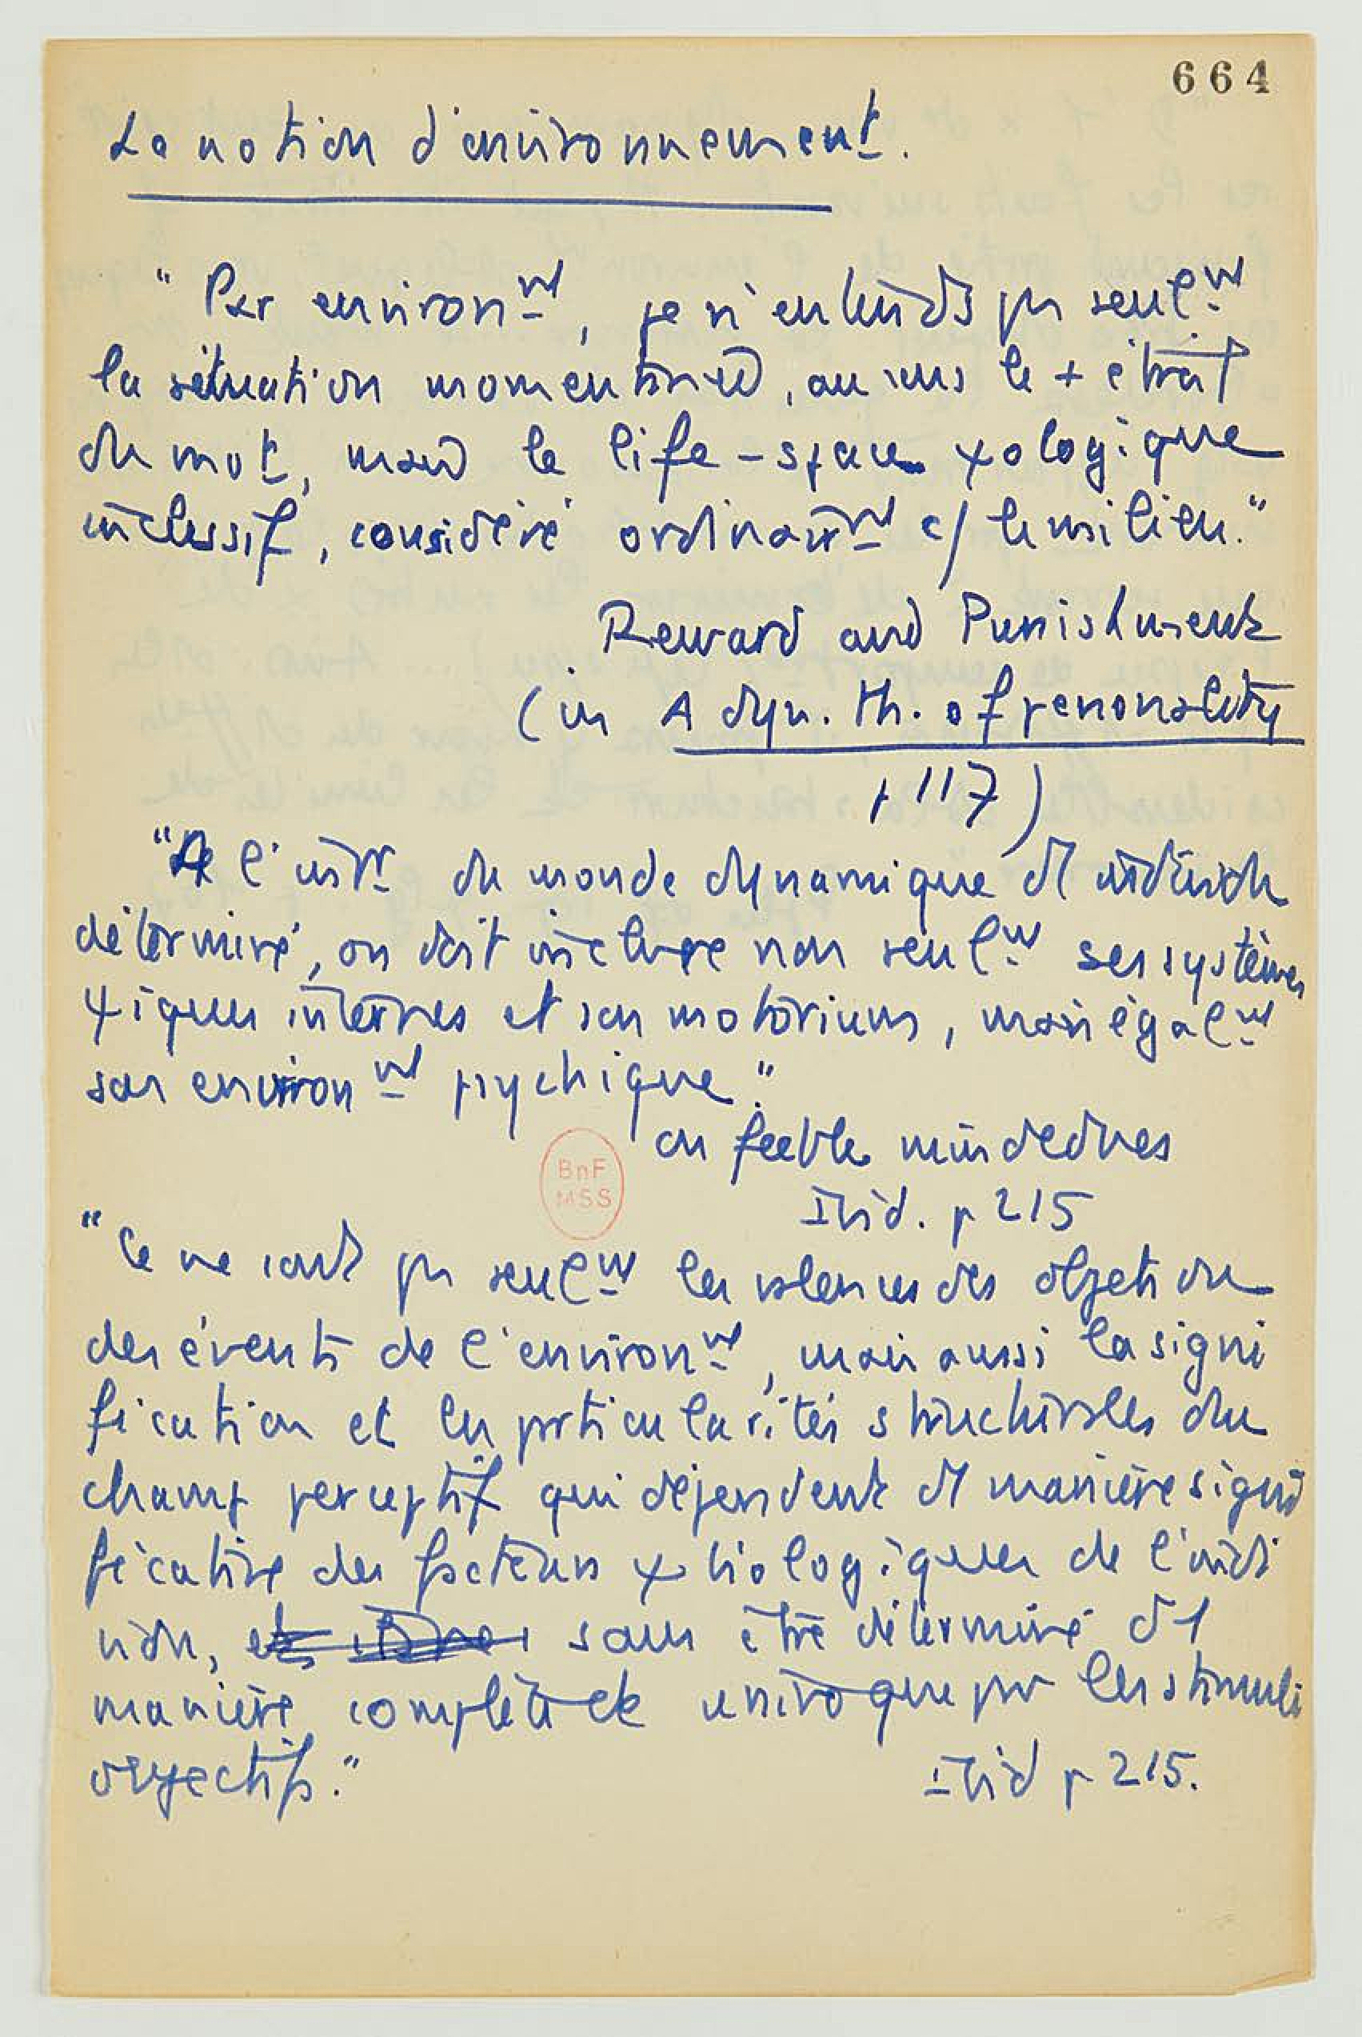 664
La notion d'environnement.
"Par environnt, je n'entends pas seult
la situation momentanée, au sens le + étroit
du mot, mais le life-space ψologique
inclusif, considéré ordinairt c/ le milieu."
Reward and Punishment
(in A dyn. th. of personality
p 117)
"A l'intr du monde dynamique d'1 individu
déterminé, on doit inclure non seult ses systèmes
ψiques internes et son motorium, mais égalt
son environnt psychique."
on feeble mindedness
Ibid. p 215
BnF
MSS
"Ce ne sont pas seult les valences des objets ou
des évents de l'environnt, mais aussi la signi
fication et les particularités structurales du
champ perceptif qui dépendent d'1 manière signi
ficative des facteurs ψbiologiques de l'indi
vidu, sans être déterminé d'1
manière complète et univoque par les stimuli
objectifs."
Ibid p 215.